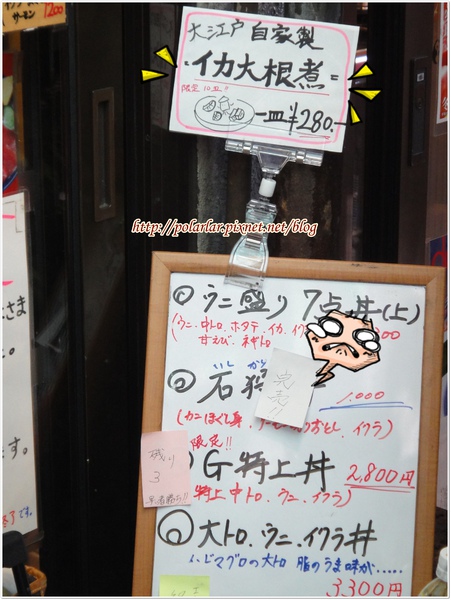 1200
サーモン
大江戸 自家製
イカ大根煮
限定10皿
一皿 ¥280.-
http://polarlar.pixnet.net/blog
ウニ盛り 7点丼(上)
(ウニ.中トロ.ホタテ.イカ.
甘えび.ネギトロ
いし
石狩
完売!!
1,000
(カニほぐし身.
イクラ)
限定!!
残り
3
G特上丼
2,800円
特上中トロ.ウニ.イクラ)
大トロ.ウニ.イクラ丼
マグロの大トロ 脂のうま味が.....
3,300円
さま
す。
終了です。